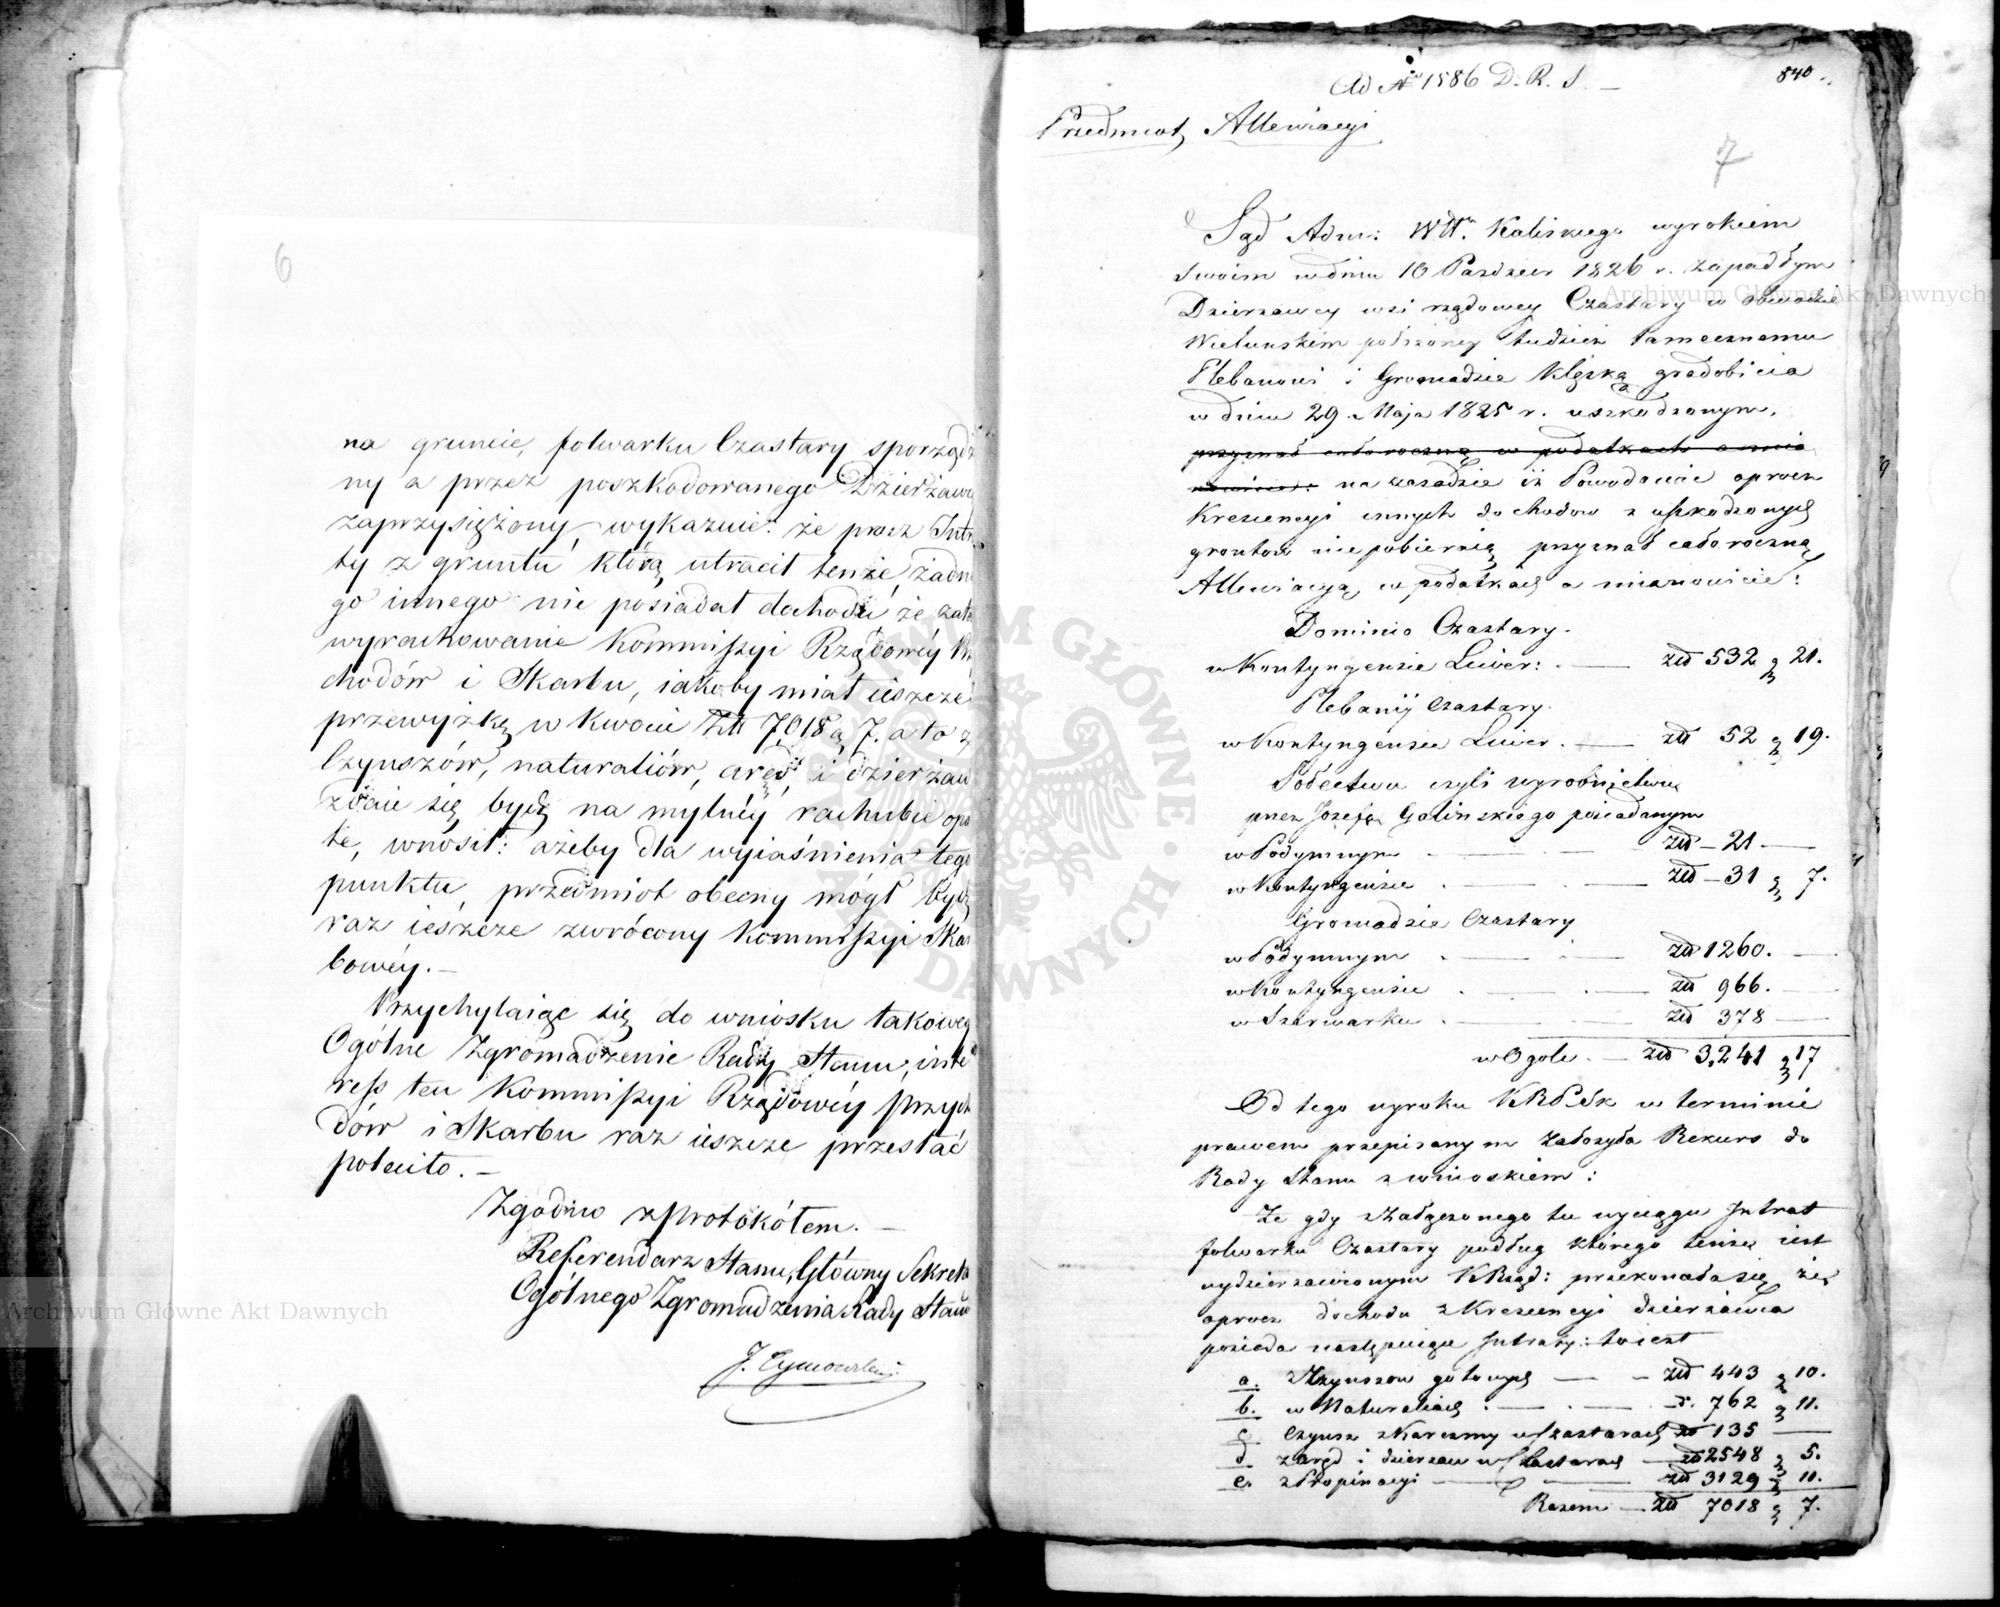 6
na gruncie, folwarku Czastary sporządz
ny a przez poszkodowanego Dzierżawc
zaprzysiężony, wykazuie: że prócz Intr
ty z gruntu którą utracił tenże, żadn
go innego nie posiadał dochodu że zate
wyrachowanie Kommissyi Rządowéy Prz
chodów i Skarbu, iakoby miał ieszcze
przewyżkę w kwocie Złł 7018 g 7. a to z
Czynszów, naturaliów, aręd i dzierżaw
zdaie się bydź na mylnéy rachubie opa
te, wnosił: ażeby dla wyiaśnienia tego
punktu, przedmiot obecny mógł bydź
raz ieszcze zwrócony Kommissyi Skar
bowéy.—
Przychylaiąc się do wniosku takoweg
Ogólne Zgromadzenie Rady Stanu, inte
ress ten Kommissyi Rządowéy Przych
dów i Skarbu raz ieszcze przesłać
poleciło.—
Zgodno z protokółem.—
Referendarz Stanu, Główny Sekreta
Ogólnego Zgromadzenia Rady Stanu
J. Tymowski
Ad No 1586 D. R. S.—
840.
Przedmiot Allewiacyi
7
Sąd Adm: Wtt. Kaliskiego wyrokiem
swoim w dniu 10 Pazdzier 1826 r. zapadłym
Dzierzawcy wsi rządowey Czastary w obwodzie
Wieluńskim położoney tudziez tamecznemu
Plebanowi i Gromadzie klęską gradobicia
w dniu 29 Maja 1825 r. uszkodzonym,
przyznał całoroczną w podatkach a mia
nowicie: na zasadzie iż Powodowie oprocz
Krescencyi innych dochodow z uszkodzonych
gruntow nie pobieraią, przyznał całoroczną
Allewiacyą w podatkach a mianowicie:
Dominio Czastary.
w Kontyngensie Liwer: — złł 532 g 21.
Plebanij Czastary.
w Kontyngensie Liwer. — złł 52 g 19.
Sołectwu czyli wyrobnictwu
przez Józefa Galinskiego posiadanym
w Podymnym — złł — 21 —
w Kontyngensie — złł — 31 g 7.
Gromadzie Czastary
w Podymnym — złł 1260. —
w Kontyngensie — złł 966. —
w Szarwarku — złł 378 —
w Ogole — złł 3,241 g 17
Od tego wyroku KRPSk w terminie
prawem przepisanym założyła Rekurs do
Rady Stanu z wnioskiem:
Ze gdy z załączonego tu wyciągu Intrat
folwarku Czastary podług którego tenże iest
wydzierzawionym KRząd: przekonała się, że
oprocz dochodu z Krescencyi dzierżawca
posiada następuiące Intraty: to iest
a. z Czynszow gotowych — złł 443 g 10.
b. w Naturaliach — złł 762 g 11.
c. Czynsz z Karczmy w Czastarach złł 135 —
d. z aręd i dzierzaw w Czastarach złł 2548 g 5.
e. z Propinacyi — złł 3129 g 11.
Razem — złł 7018 g 7.
Archiwum Główne Akt Dawnych
Archiwum Główne Akt Dawnych
ARCHIWUM GŁÓWNE AKT DAWNYCH